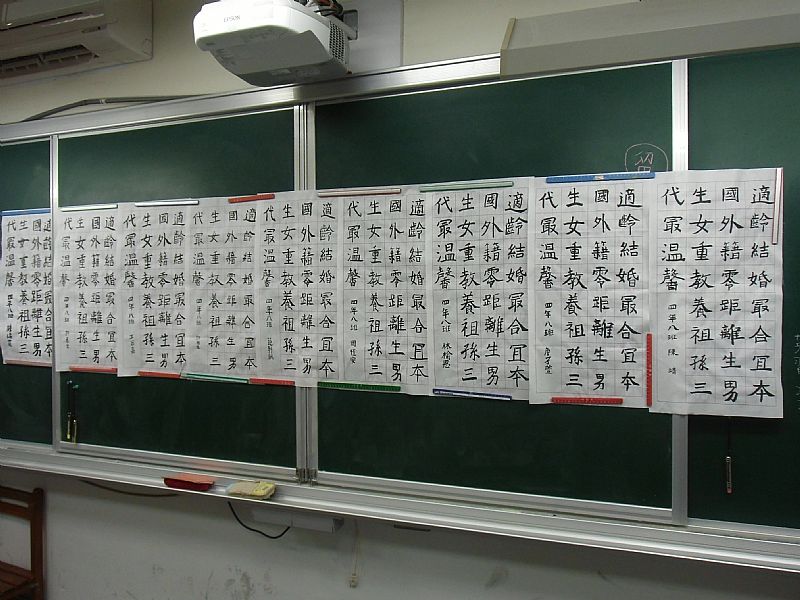 EPSON
適齡結婚最合宜本
國外籍零距離生男
生女重教養祖孫三
代最溫馨 四年八班 陳 靖
適齡結婚最合宜本
國外籍零距離生男
生女重教養祖孫三
代最溫馨 四年八班
適齡結婚最合宜本
國外籍零距離生男
生女重教養祖孫三
代最溫馨 四年八班 林榆恩
適齡結婚最合宜本
國外籍零距離生男
生女重教養祖孫三
代最溫馨 四年八班
適齡結婚最合宜本
國外籍零距離生男
生女重教養祖孫三
代最溫馨 四年八班
適齡結婚最合宜本
國外籍零距離生男
生女重教養祖孫三
代最溫馨 四年八班
適齡結婚最合宜本
國外籍零距離生男
生女重教養祖孫三
代最溫馨 四年八班
適齡結婚最合宜本
國外籍零距離生男
生女重教養祖孫三
代最溫馨 四年八班
適齡結婚最合宜本
國外籍零距離生男
生女重教養祖孫三
代最溫馨 四年八班